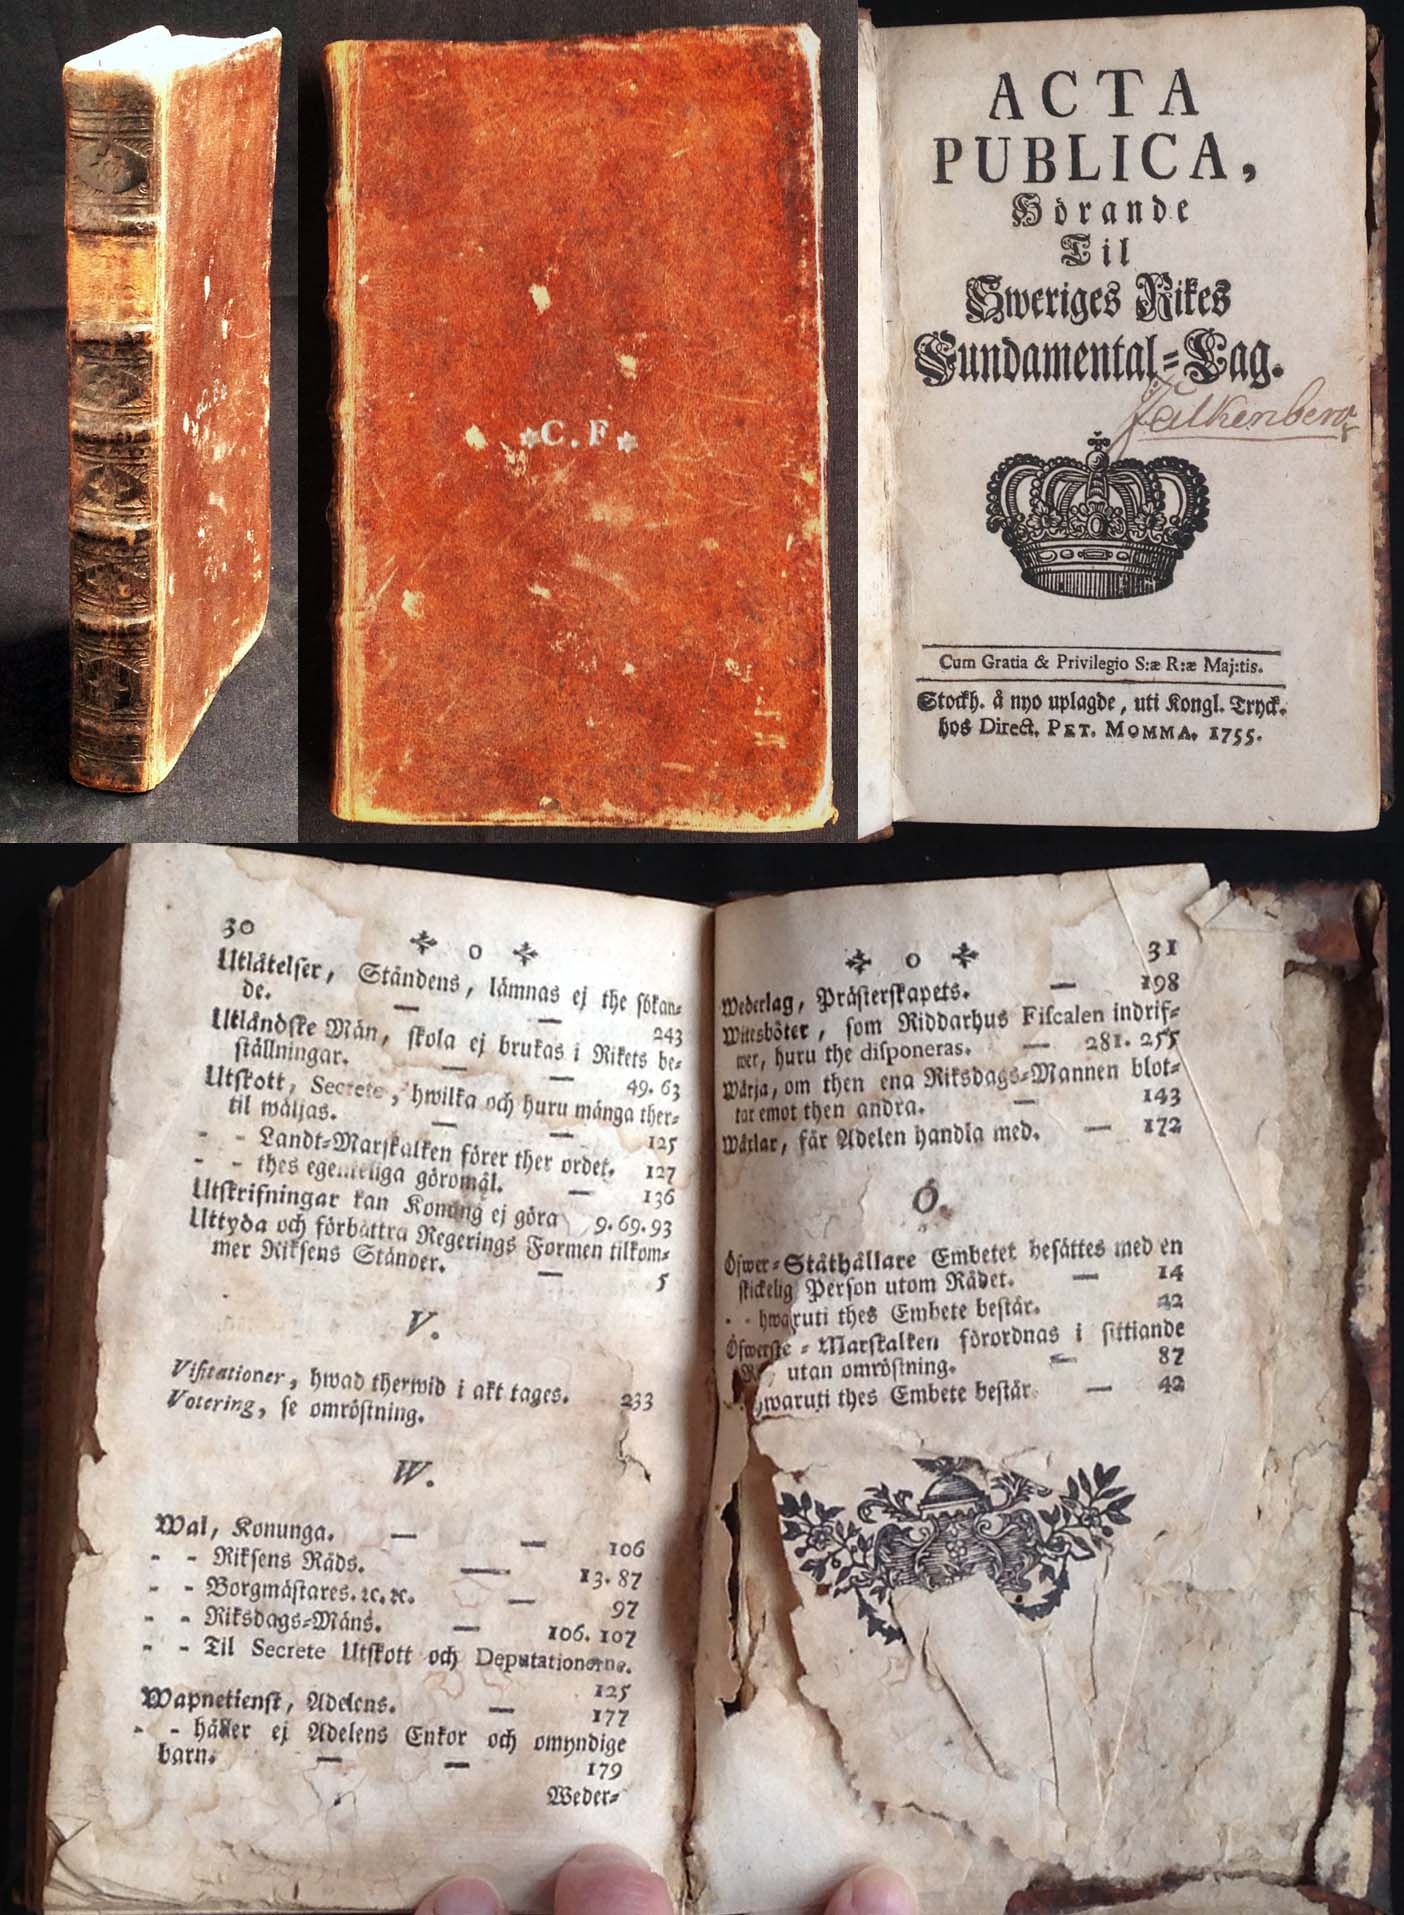 ✲C.F✲
ACTA
PUBLICA,
Hörande
Til
Sweriges Rikes
Fundamental-Lag.
Falkenberg
Cum Gratia & Privilegio S:æ R:æ Maj:tis.
Stockh. å nyo uplagde, uti Kongl. Tryck.
hos Direct. PET. MOMMA. 1755.
30
o
Utlåtelser, Ständens, lämnas ej the sökan-
de. — — 243
Utländske Män, skola ej brukas i Rikets be-
ställningar. — — 49. 63
Utskott, Secrete, hwilka och huru många ther-
til wäljas. — — 125
- - Landt-Marskalken förer ther ordet. 127
- - thes egenteliga göromål. — 136
Utskrifningar kan Konung ej göra 9. 69. 93
Uttyda och förbättra Regerings Formen tilkom-
mer Riksens Ständer. — 5
V.
Visitationer, hwad therwid i akt tages. 233
Votering, se omröstning.
W.
Wal, Konunga. — — 106
- - Riksens Råds. — 13. 87
- - Borgmästares. ꝛc. ꝛc. — 97
- - Riksdags-Mäns. — 106. 107
- - Til Secrete Utskott och Deputationerne.
125
Wapnetienst, Adelens. — 177
- - håller ej Adelens Enkor och omyndige
barn. — — 179
Weder-
o
31
Wederlag, Prästerskapets. — 198
Wittesböter, som Riddarhus Fiscalen indrif-
wer, huru the disponeras. — 281. 255
Wärja, om then ena Riksdags-Mannen blot-
tar emot then andra. — 143
Wäxlar, får Adelen handla med. — 172
Ö.
Öfwer-Ståthållare Embetet besättes med en
skickelig Person utom Rådet. — 14
- - hwaruti thes Embete består. 42
Öfwerste-Marskalken förordnas i sittiande
utan omröstning. — 87
hwaruti thes Embete består. — 42